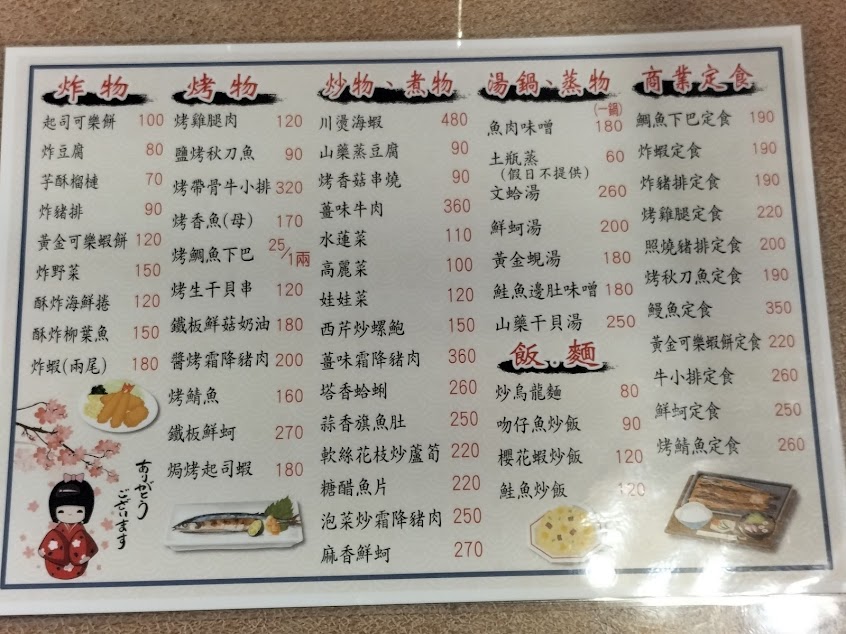 炸物
起司可樂餅 100
炸豆腐 80
芋酥榴槤 70
炸豬排 90
黃金可樂蝦餅 120
炸野菜 150
酥炸海鮮捲 120
酥炸柳葉魚 150
炸蝦(兩尾) 180
ありがとう
ございます
烤物
烤雞腿肉 120
鹽烤秋刀魚 90
烤帶骨牛小排 320
烤香魚(母) 170
烤鯛魚下巴 25/1兩
烤生干貝串 120
鐵板鮮菇奶油 180
醬烤霜降豬肉 200
烤鯖魚 160
鐵板鮮蚵 270
焗烤起司蝦 180
炒物、煮物
川燙海蝦 480
山藥蒸豆腐 90
烤香菇串燒 90
薑味牛肉 360
水蓮菜 110
高麗菜 100
娃娃菜 120
西芹炒螺鮑 150
薑味霜降豬肉 360
塔香蛤蜊 260
蒜香旗魚肚 250
軟絲花枝炒蘆筍 220
糖醋魚片 220
泡菜炒霜降豬肉 250
麻香鮮蚵 270
湯鍋、蒸物
(一鍋)
魚肉味噌 180
土瓶蒸 60
(假日不提供)
文蛤湯 260
鮮蚵湯 200
黃金蜆湯 180
鮭魚邊肚味噌 180
山藥干貝湯 250
飯.麵
炒烏龍麵 80
吻仔魚炒飯 90
櫻花蝦炒飯 120
鮭魚炒飯 120
商業定食
鯛魚下巴定食 190
炸蝦定食 190
炸豬排定食 190
烤雞腿定食 220
照燒豬排定食 200
烤秋刀魚定食 190
鰻魚定食 350
黃金可樂蝦餅定食 220
牛小排定食 260
鮮蚵定食 250
烤鯖魚定食 260